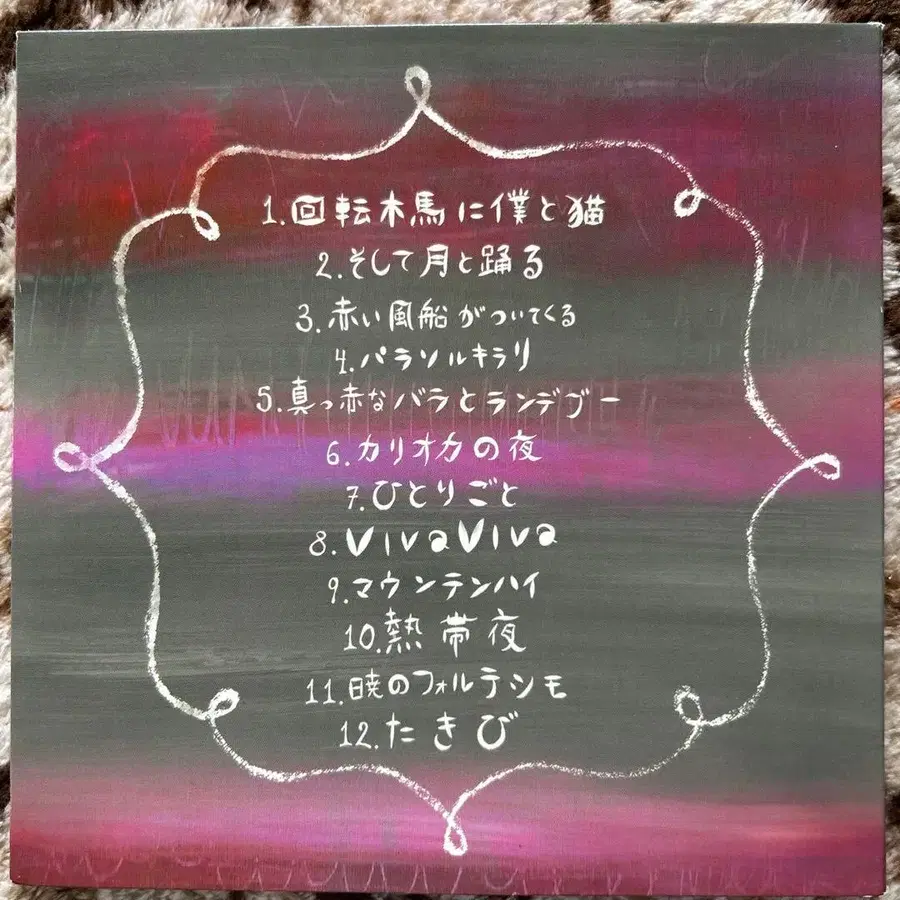 1.回転木馬に僕と猫
2.そして月と踊る
3.赤い風船がついてくる
4.パラソルキラリ
5.真っ赤なバラとランデブー
6.カリオカの夜
7.ひとりごと
8.VivaViva
9.マウンテンハイ
10.熱帯夜
11.暁のフォルテシモ
12.たきび